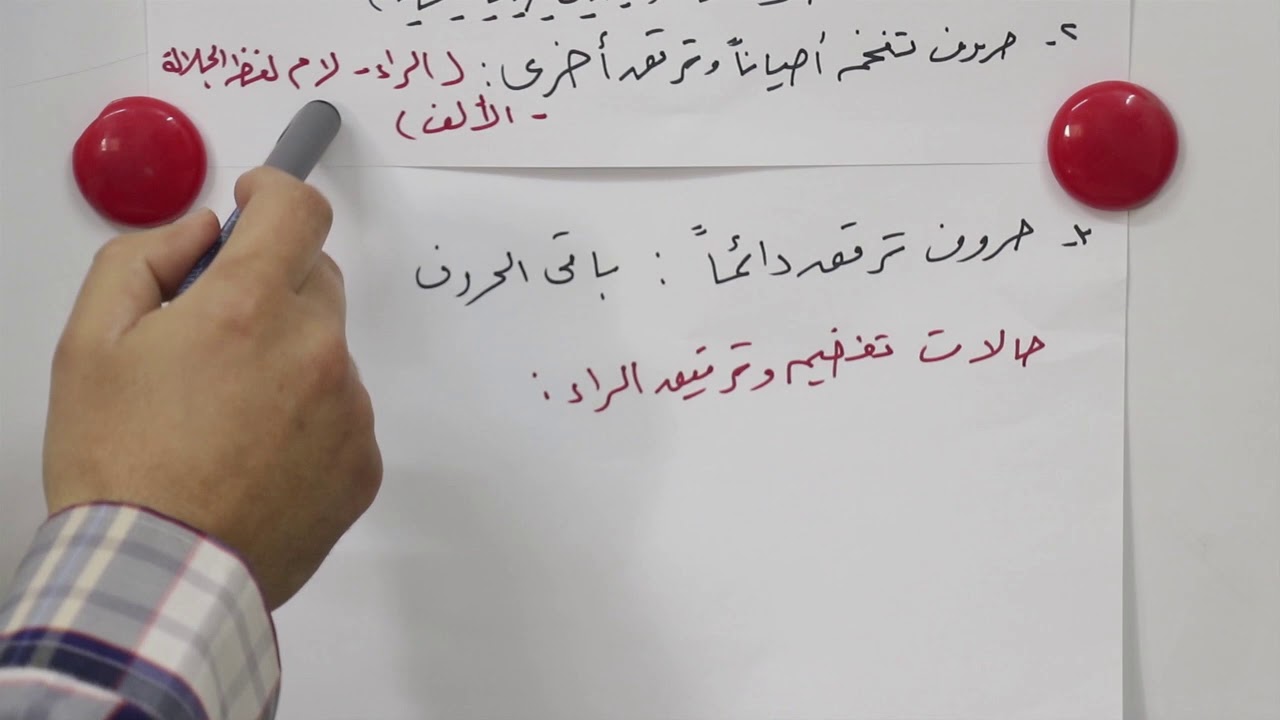 ٢- حروف تفخم أحياناً وترقق أخرى : ( الراء - لام لفظ الجلالة
- الألف )
٣- حروف ترقق دائماً : باقى الحروف
حالات تفخيم وترقيق الراء :